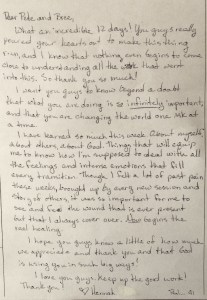 Dear Pete and Bree,
What an incredible 12 days! You guys really
poured your hearts out to make this thing
run, and I know that nothing ever begins to come
close to understanding all the work that went
into this. So thank you so much!
I want you guys to know beyond a doubt
that what you are doing is so infinitely important,
and that you are changing the world one life at
a time.
I have learned so much this week. About myself,
about others, about God. Things that will equip
me to know how I'm supposed to deal with all
the feelings and intense emotions that fill
every transition. Though I felt a lot of past pain
these weeks, brought up by every new session and
story of others, it was so important for me to
see and feel the wound that is ever present
but that I always over. Now begins the
real healing.
I hope you guys know a little of how much
we appreciate and thank you and that God
is using you in such big ways!
I love you guys. Keep up the good work!
Thank you! Hannah